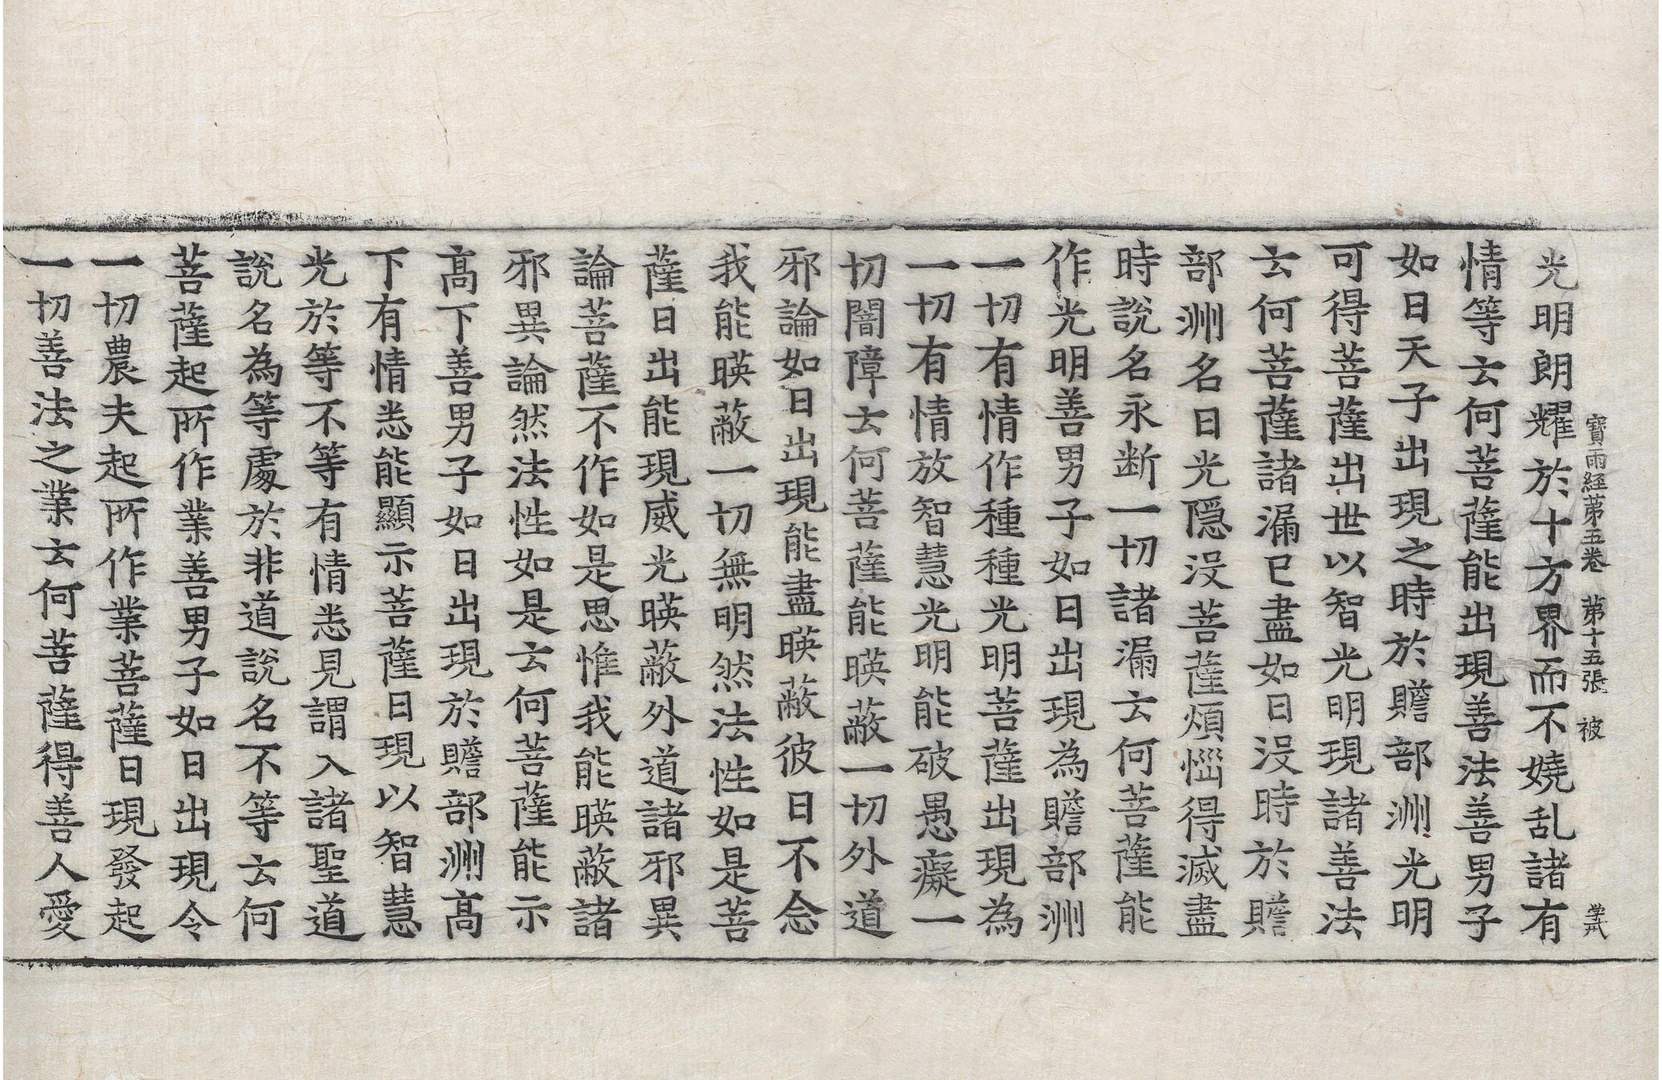 寶雨經第五卷 第十五張 被
光明朗耀於十方界而不嬈乱諸有
情等云何菩薩能出現善法善男子
如日天子出現之時於贍部洲光明
可得菩薩出世以智光明現諸善法
云何菩薩諸漏已盡如日没時於贍
部洲名日光隱没菩薩煩惱得滅盡
時說名永断一切諸漏云何菩薩能
作光明善男子如日出現為贍部洲
一切有情作種種光明菩薩出現為
一切有情放智慧光明能破愚癡一
切闇障云何菩薩能暎蔽一切外道
邪論如日出現能盡暎蔽彼日不念
我能暎蔽一切無明然法性如是菩
薩日出能現威光暎蔽外道諸邪異
論菩薩不作如是思惟我能暎蔽諸
邪異論然法性如是云何菩薩能示
高下善男子如日出現於贍部洲高
下有情悉能顯示菩薩日現以智慧
光於等不等有情悉見謂入諸聖道
說名為等處於非道說名不等云何
菩薩起所作業善男子如日出現令
一切農夫起所作業菩薩日現發起
一切善法之業云何菩薩得善人愛